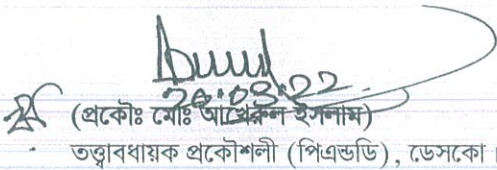 ২০.০৩.২২
(প্রকৌঃ মোঃ আখেরুল ইসলাম)
তত্ত্বাবধায়ক প্রকৌশলী (পিএন্ডডি), ডেসকো।